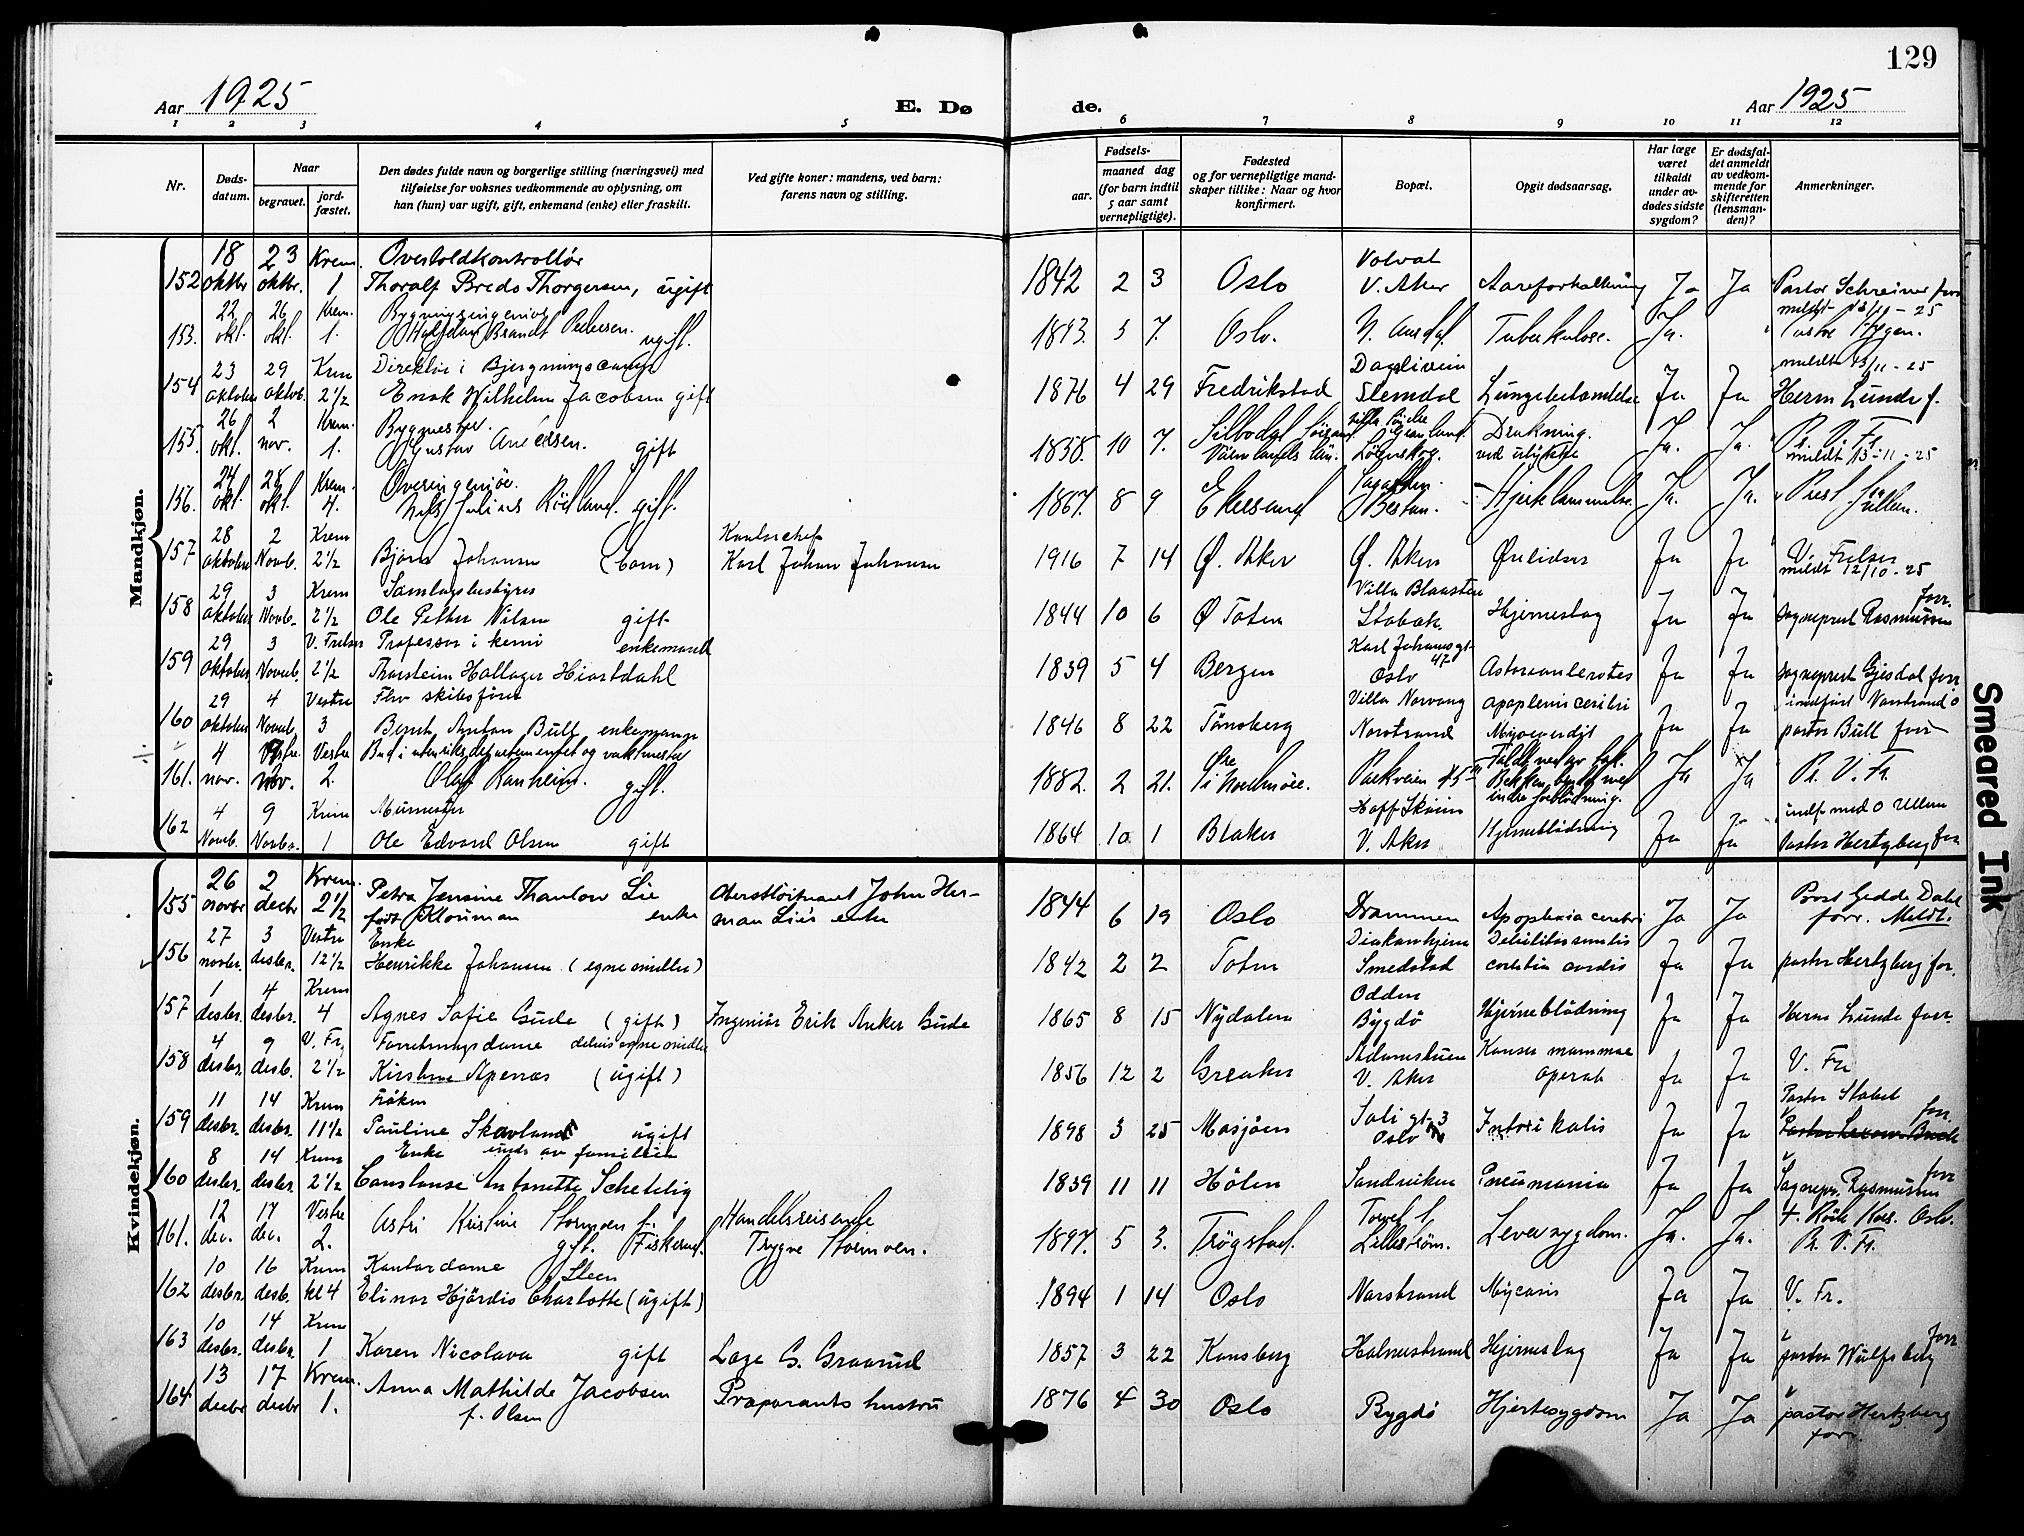 129
Aar 1925
E. Dø
de.
Aar 1925
1 2 3 4 5 6 7 8 9 10 11 12
Nr.
Døds-
datum.
Naar
begravet.
jord-
fæstet.
Den dødes fulde navn og borgerlige stilling (næringsvei) med
tilføielse for voksnes vedkommende av oplysning, om
han (hun) var ugift, gift, enkemand (enke) eller fraskilt.
Ved gifte koner: mandens, ved barn:
farens navn og stilling.
Fødsels-
aar.
maaned dag
(for barn indtil
5 aar samt
vernepligtige).
Fødested
og for vernepligtige mand-
skaper tillike: Naar og hvor
konfirmert.
Bopæl.
Opgit dødsaarsag.
Har læge
været
tilkaldt
under av-
dødes sidste
sygdom?
Er dødsfal-
det anmeldt
av vedkom-
mende for
skifteretten
(lensman-
den)?
Anmerkninger.
Mandkjøn.
18 23 Krem. Overtoldkontrollør Volvat
152 oktbr. oktbr. 1 Thoralf Breda Thorgersen, ugift 1842 2 3 Oslo V. Aker Aareforkalkning Ja Ja Pastor Schreiner forr.
22 26 Krem. Bygningsingeniør meldt 13/11-25
153. okt. okt. 1. Halfdan Brandt Pedersen. ugift. 1893. 5 7. Oslo. Tuberkulose. Ja.
23 29 Krem Direktør i meldt 13/11-25
154 oktober oktob. 2½ Enok Wilhelm Jacobsen gift 1876 4 29 Fredrikstad Slemdal Lungebetændelse Ja Ja Herm Lunde f.
26 2 Krem. Bygmester.
155. okt. nov. 1. Gustav gift 1858. 10 7. Drukning. Ja. Ja.
Værmlands län. ved ulykke meldt 13-11-25
24 28 Krem. Overingeniør.
156. okt. okt. 4. Nils Julius gift. 1867. 8 9 Bestun. Hjertelammelse Ja. Ja.
28 2 Krem Kontorchef
157 oktober Novb. 2½ Bjørn Johansen (barn) Karl Johan Johansen 1916 7 14 Ø. Aker Ø. Aker Ja Ja V. Frelser
meldt 12/10-25
29 3 Krem Samlagsbestyrer Villa
158 oktober Novb. 2½ Ole Petter Nilsen gift 1844 10 6 Ø Toten Stabæk Hjerneslag Ja Ja Sogneprest Rasmussen forr.
29 3 V. Frelser Professor i kemi enkemand Karl Johansgt. 47
159 oktober Novemb. 2½ Thorstein Hallager Hiortdahl 1839 5 4 Bergen Oslo Ja Ja sogneprest Gjesdal forr
29 4 Vestre Fhv skibsfører Villa Norvang apoplexia cerebri
160 oktober Novemb. 3 Bernt Anton Bull enkemann 1846 8 22 Tønsberg Norstrand Ja Ja pastor Bull forr
4 Vestre Bud i utenriksdepartementet og vaktmester
161. nov. nov. 2. Olaf Ranheim. gift. 1882. 2 21. Ja Ja Pr. V. Fr.
indre forblødning.
4 9 Krem Murmester Hoff Skøien
162 Novb. Novbr. 1 Ole Edvard Olsen gift 1864 10 1 Blaker V. Aker Hjerneblødning Ja Ja Pastor Hertzberg forr
Kvindekjøn.
26 2 Krem. Petra Jensine Thaulow Lie Oberstløitnant John Her-
155 novbr decbr 2½ født Klouman enke man Lie's enke 1844 6 19 Oslo Drammen Apoplexia cerebri Ja Ja Prost Gedde Dahl
forr. Meldt.
27 3 Vestre Enke Diakonhjem Debilitas senilis
156 novbr. desbr. 12½ Henrikke Johansen (egne midler) 1842 2 2 Toten Smedstad cordis Ja Ja pastor Hertzberg for.
1 4 Krem Odden
157 desbr. desbr. 4 Agnes Sofie Gude (gift) Ingeniør Erik Anker Gude 1865 8 15 Nydalen Bygdø Hjerneblødning Ja Ja Herm Lunde forr.
4 9 V. Fr. Forretningsdame delvis egne midler Adamstuen Kanser mammae
158 desbr. desb. 2½ Kirstine Apenæs (ugift) 1856 12 2 Greaker V. Aker operat Ja Ja V. Fr
11 14 Krem Frøken Pastor Stabel
159 desbr. desbr. 11½ Pauline Skavland ugift 1898 3 25 Mosjøen Oslo Ja Ja forr
8 14 Krem Enke unds av familien
160 desbr. desbr. 2½ Constanse Antonette Schetelig 1839 11 11 Hølen Sandviken Pneumonia Ja Ja Sognepr. Rasmussen forr
12 17 Vestre Astri Kristine Stormoen f. Handelsreisende Torvet 1
161. dec. dec. 2. gift. Trygve Stormoen. 1897. 5 3. Trøgstad. Lillestrøm. Leversygdom. Ja. Ja. Pr. V. Fr.
10 16 Krem Kontordame Steen
162 desbr. desb. kl 4 Elinor Hjørdis Charlotte (ugift) 1894 1 14 Oslo Norstrand Ja Ja V. Fr.
10 14 Krem
163 desbr. desbr. 1 Karen Nicolava gift Lage G. Graarud 1857 3 22 Konsberg Holmestrand Hjerneslag Ja Ja pastor Wulfsberg forr
13 17 Krem. Anna Mathilde Jacobsen
164 decbr decbr 1. f. Olsen Præparants hustru 1876 4 30 Oslo Bygdø Hjertesygdom Ja Ja pastor Hertzberg
forr.
Smeared Ink